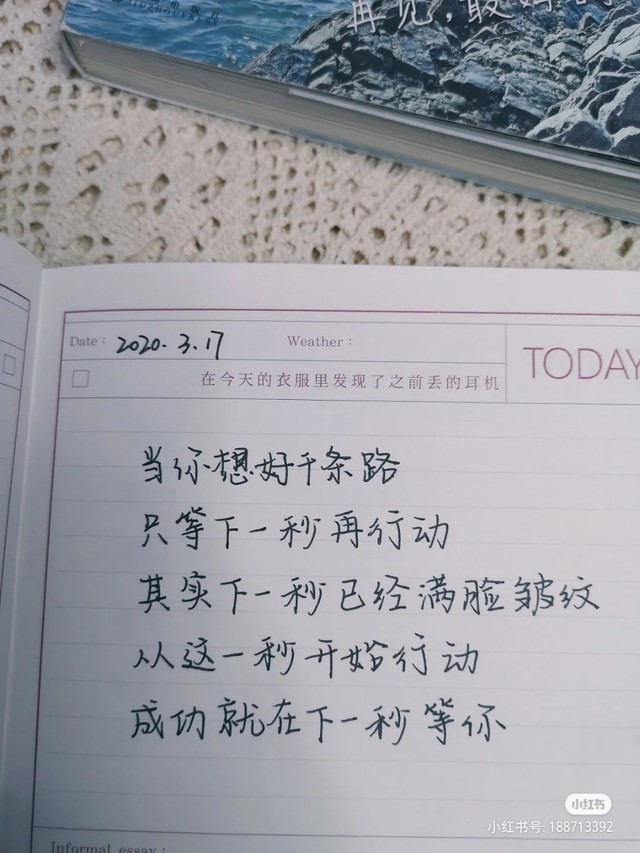 再见,最
Date: 2020.3.17 Weather:
TODAY
在今天的衣服里发现了之前丢的耳机
当你想好千条路
只等下一秒再行动
其实下一秒已经满脸皱纹
从这一秒开始行动
成功就在下一秒等你
Informal essay:
小红书
小红书号: 188713392